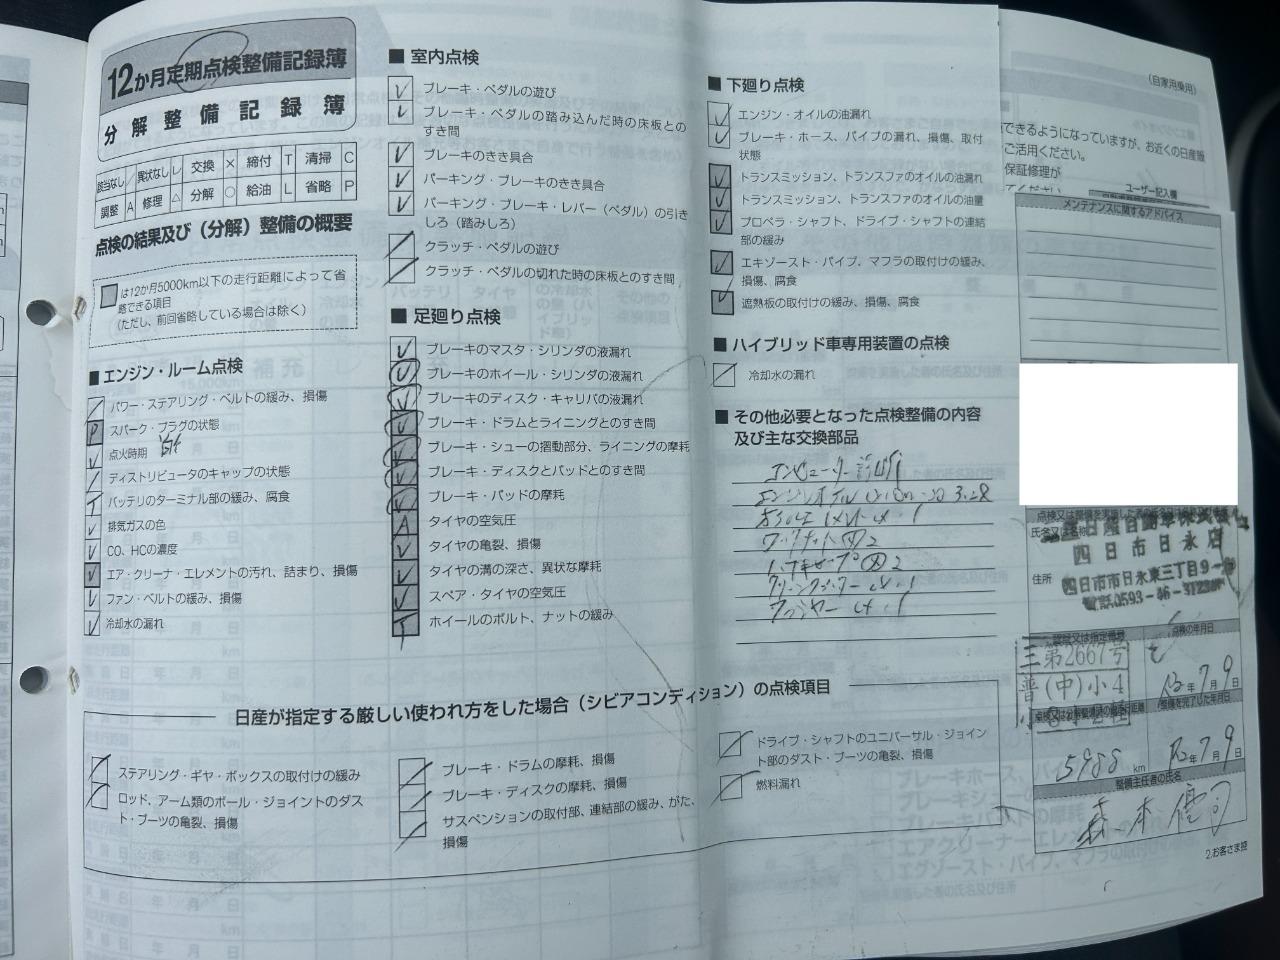 12か月定期点検整備記録簿
分解整備記録簿
該当なし / 異状なし レ 交換 × 締付 T 清掃 C
調整 A 修理 △ 分解 ○ 給油 L 省略 P
点検の結果及び（分解）整備の概要
は12か月5000km以下の走行距離によって省
略できる項目
（ただし、前回省略している場合は除く）
■ エンジン・ルーム点検
パワー・ステアリング・ベルトの緩み、損傷
P スパーク・プラグの状態
点火時期
ディストリビュータのキャップの状態
T バッテリのターミナル部の緩み、腐食
排気ガスの色
CO、HCの濃度
エア・クリーナ・エレメントの汚れ、詰まり、損傷
ファン・ベルトの緩み、損傷
冷却水の漏れ
■ 室内点検
ブレーキ・ペダルの遊び
ブレーキ・ペダルの踏み込んだ時の床板との
すき間
ブレーキのきき具合
パーキング・ブレーキのきき具合
パーキング・ブレーキ・レバー（ペダル）の引き
しろ（踏みしろ）
クラッチ・ペダルの遊び
クラッチ・ペダルの切れた時の床板とのすき間
■ 足廻り点検
ブレーキのマスタ・シリンダの液漏れ
ブレーキのホイール・シリンダの液漏れ
ブレーキのディスク・キャリパの液漏れ
ブレーキ・ドラムとライニングとのすき間
ブレーキ・シューの摺動部分、ライニングの摩耗
ブレーキ・ディスクとパッドとのすき間
ブレーキ・パッドの摩耗
A タイヤの空気圧
タイヤの亀裂、損傷
タイヤの溝の深さ、異状な摩耗
スペア・タイヤの空気圧
T ホイールのボルト、ナットの緩み
■ 下廻り点検
エンジン・オイルの油漏れ
ブレーキ・ホース、パイプの漏れ、損傷、取付
状態
トランスミッション、トランスファのオイルの油漏れ
トランスミッション、トランスファのオイルの油量
プロペラ・シャフト、ドライブ・シャフトの連結
部の緩み
エキゾースト・パイプ、マフラの取付けの緩み、
損傷、腐食
遮熱板の取付けの緩み、損傷、腐食
■ ハイブリッド車専用装置の点検
冷却水の漏れ
■ その他必要となった点検整備の内容
及び主な交換部品
コンピューター診断
日産が指定する厳しい使われ方をした場合（シビアコンディション）の点検項目
ステアリング・ギヤ・ボックスの取付けの緩み
ロッド、アーム類のボール・ジョイントのダス
ト・ブーツの亀裂、損傷
ブレーキ・ドラムの摩耗、損傷
ブレーキ・ディスクの摩耗、損傷
サスペンションの取付部、連結部の緩み、がた、
損傷
ドライブ・シャフトのユニバーサル・ジョイン
ト部のダスト・ブーツの亀裂、損傷
燃料漏れ
（自家用乗用）
できるようになっていますが、お近くの日産販
ご活用ください。
保証修理が
ユーザー記入欄
メンテナンスに関するアドバイス
氏名又は名称
四日市日永店
住所
四日市市日永東三丁目9-
電話0593-46-
三第2667号
普(中)小4
点検の年月日
R2年7月9日
整備を完了した年月日
5988 km
R2年7月9日
整備主任者の氏名
2.お客さま控